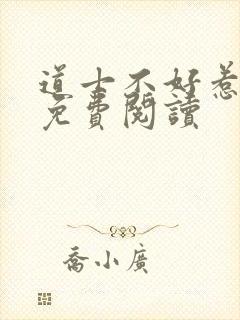 道士不好惹
免費閱讀
喬小廣